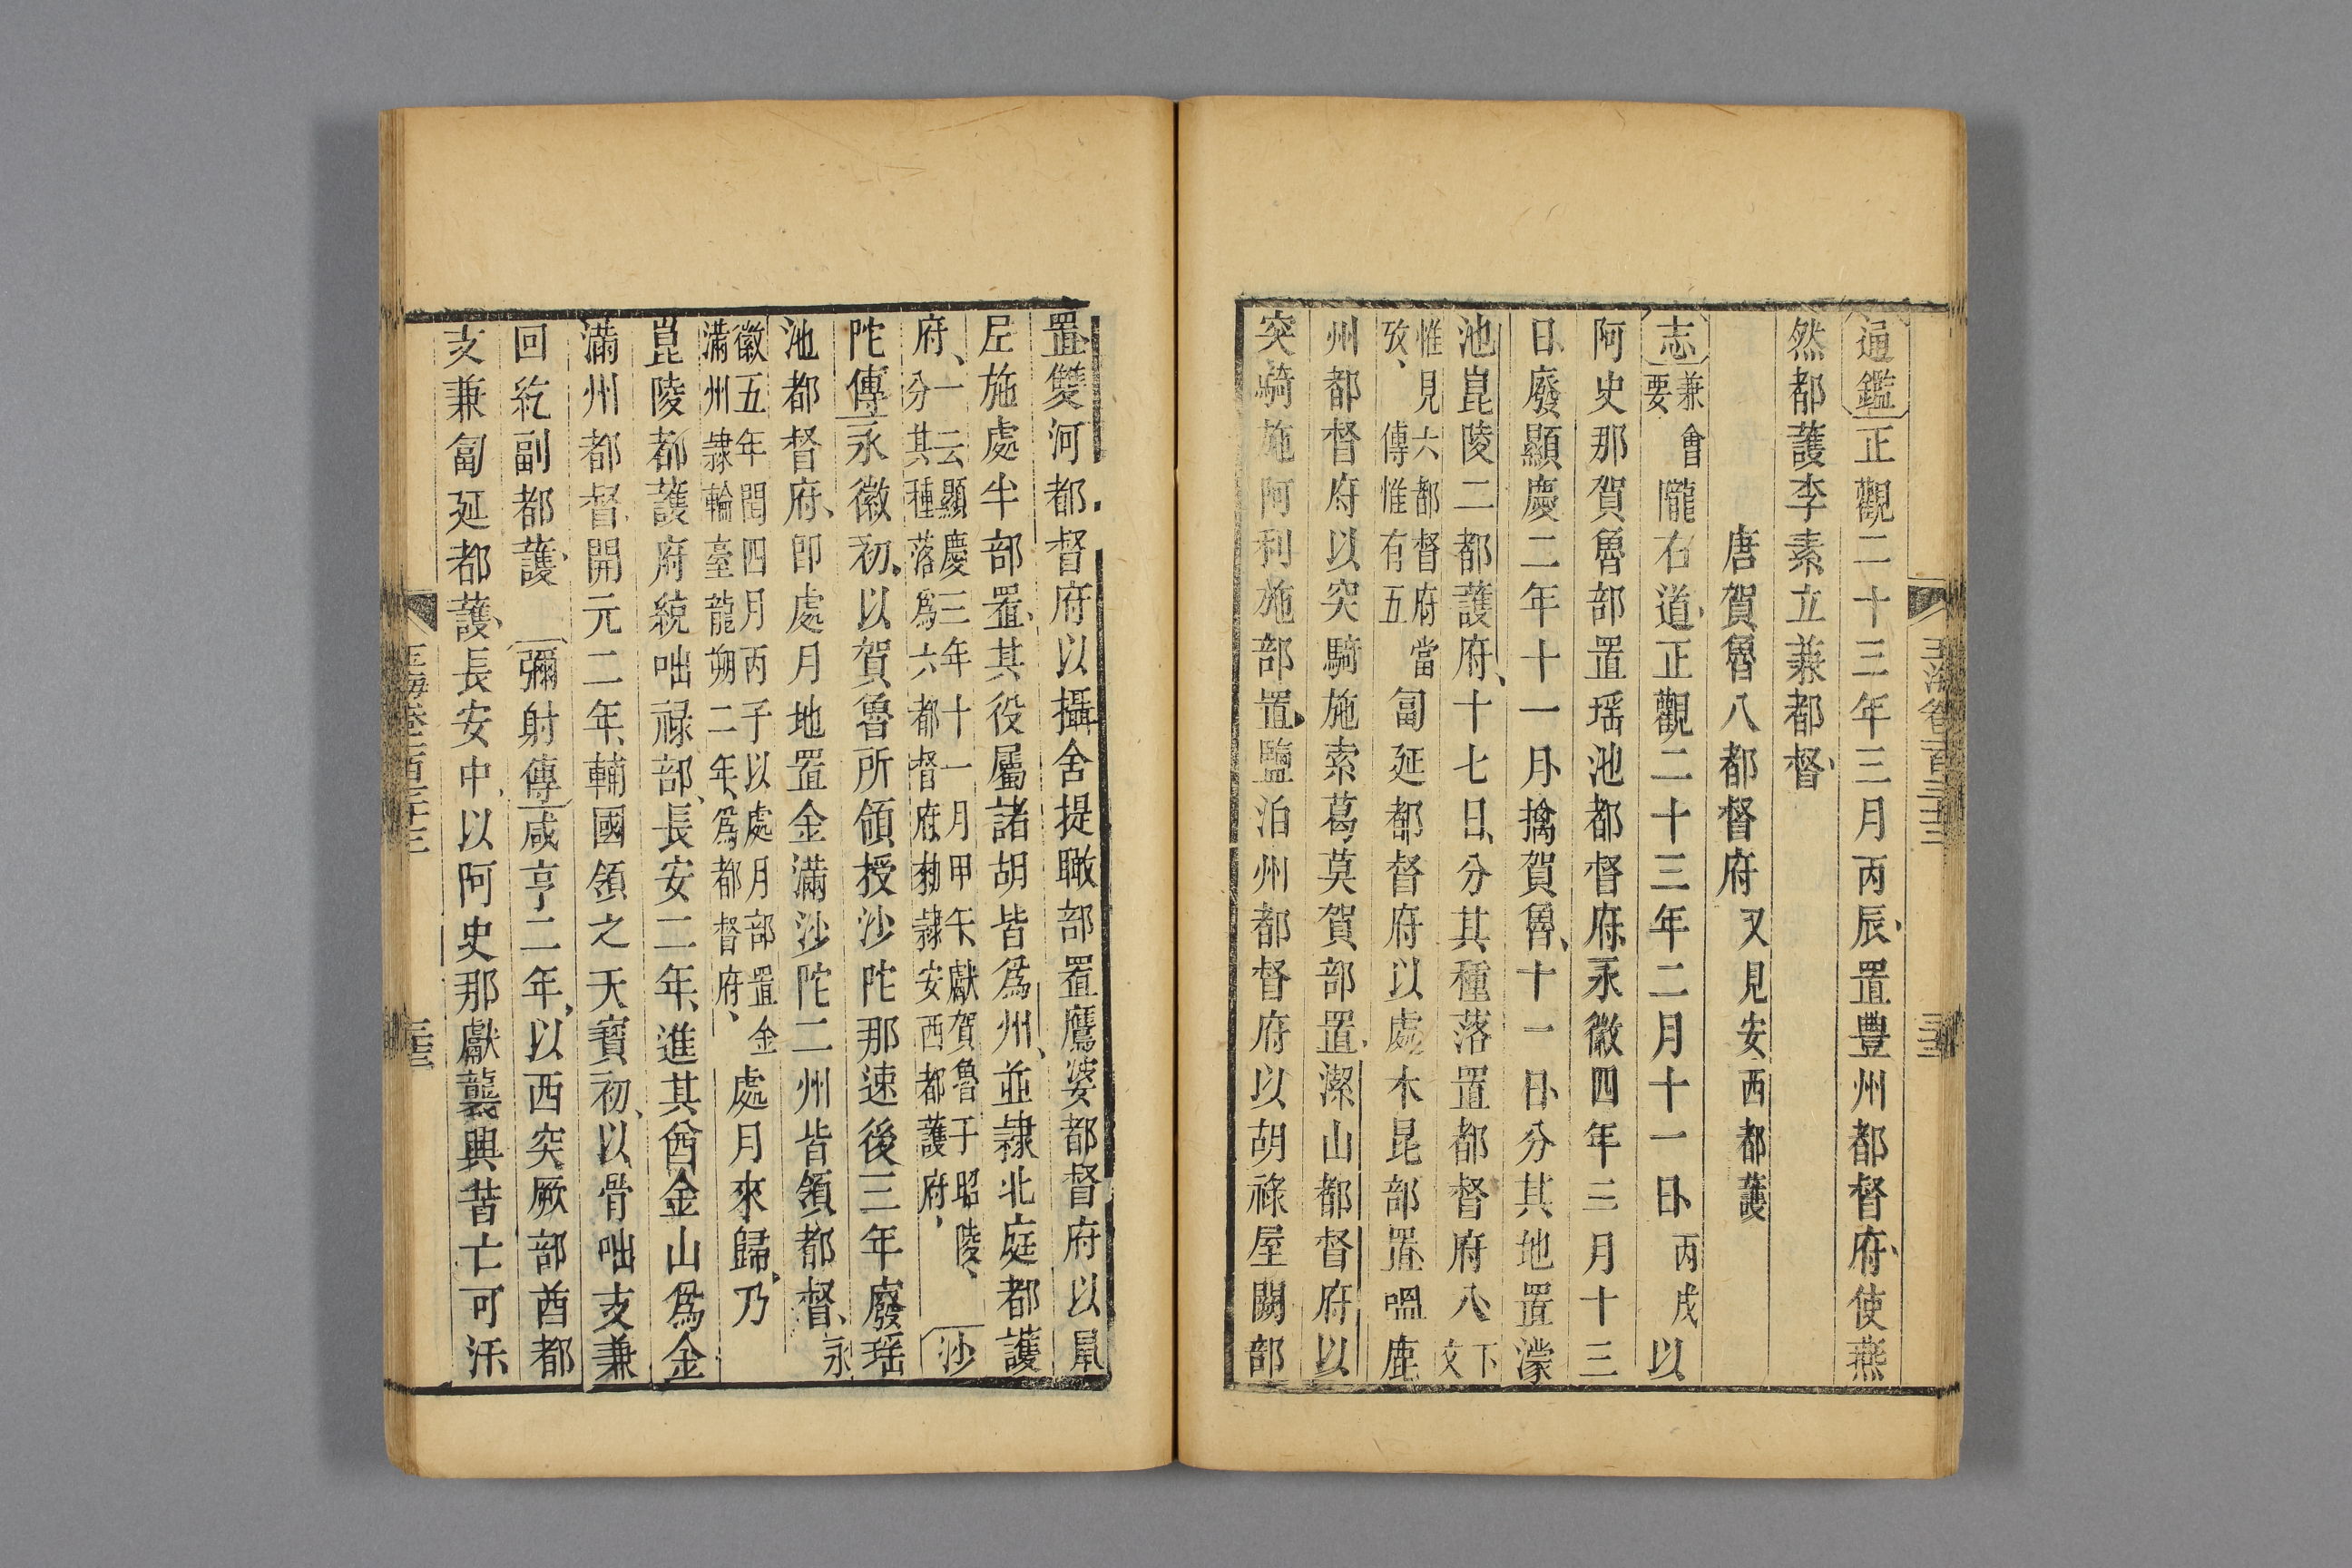 通鑑正觀二十三年三月丙辰置豊州都督府使燕
然都護李素立兼都督
唐賀魯八都督府又見安西都護
志兼會要隴右道正觀二十三年二月十一日丙戌以
阿史那賀魯部置瑶池都督府永徽四年三月十三
日廢顯慶二年十一月擒賀魯十一日分其地置濛
池崑陵二都護府十七日分其種落置都督府八下文
惟見六都督府當攷傳惟有五匐延都督府以處木昆部置嗢鹿
州都督府以突騎施索葛莫賀部置潔山都督府以
突騎施阿利施部置鹽泊州都督府以胡祿屋闕部
置雙河都督府以攝舍提暾部置鷹婆都督府以鼠
尼施處半部置其役屬諸胡皆爲州並隷北庭都護
府一云顯慶三年十一月甲午獻賀魯于昭陵分其種落爲六都督府勑隷安西都護府沙
陀傳永徽初以賀魯所領授沙陀那速後三年廢瑶
池都督府卽處月地置金滿沙陀二州皆領都督永
徽五年閏四月丙子以處月部置金滿州隷輪臺龍朔二年爲都督府處月來歸乃
崑陵都護府統咄祿部長安二年進其酋金山爲金
滿州都督開元二年輔國領之天寶初以骨咄支兼
回紇副都護彌射傳咸亨二年以西突厥部酋都
支兼匐延都護長安中以阿史那獻襲興昔亡可汗
玉海卷一百三十三